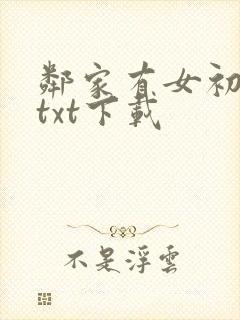 鄰家有女初
txt下載
不是浮雲